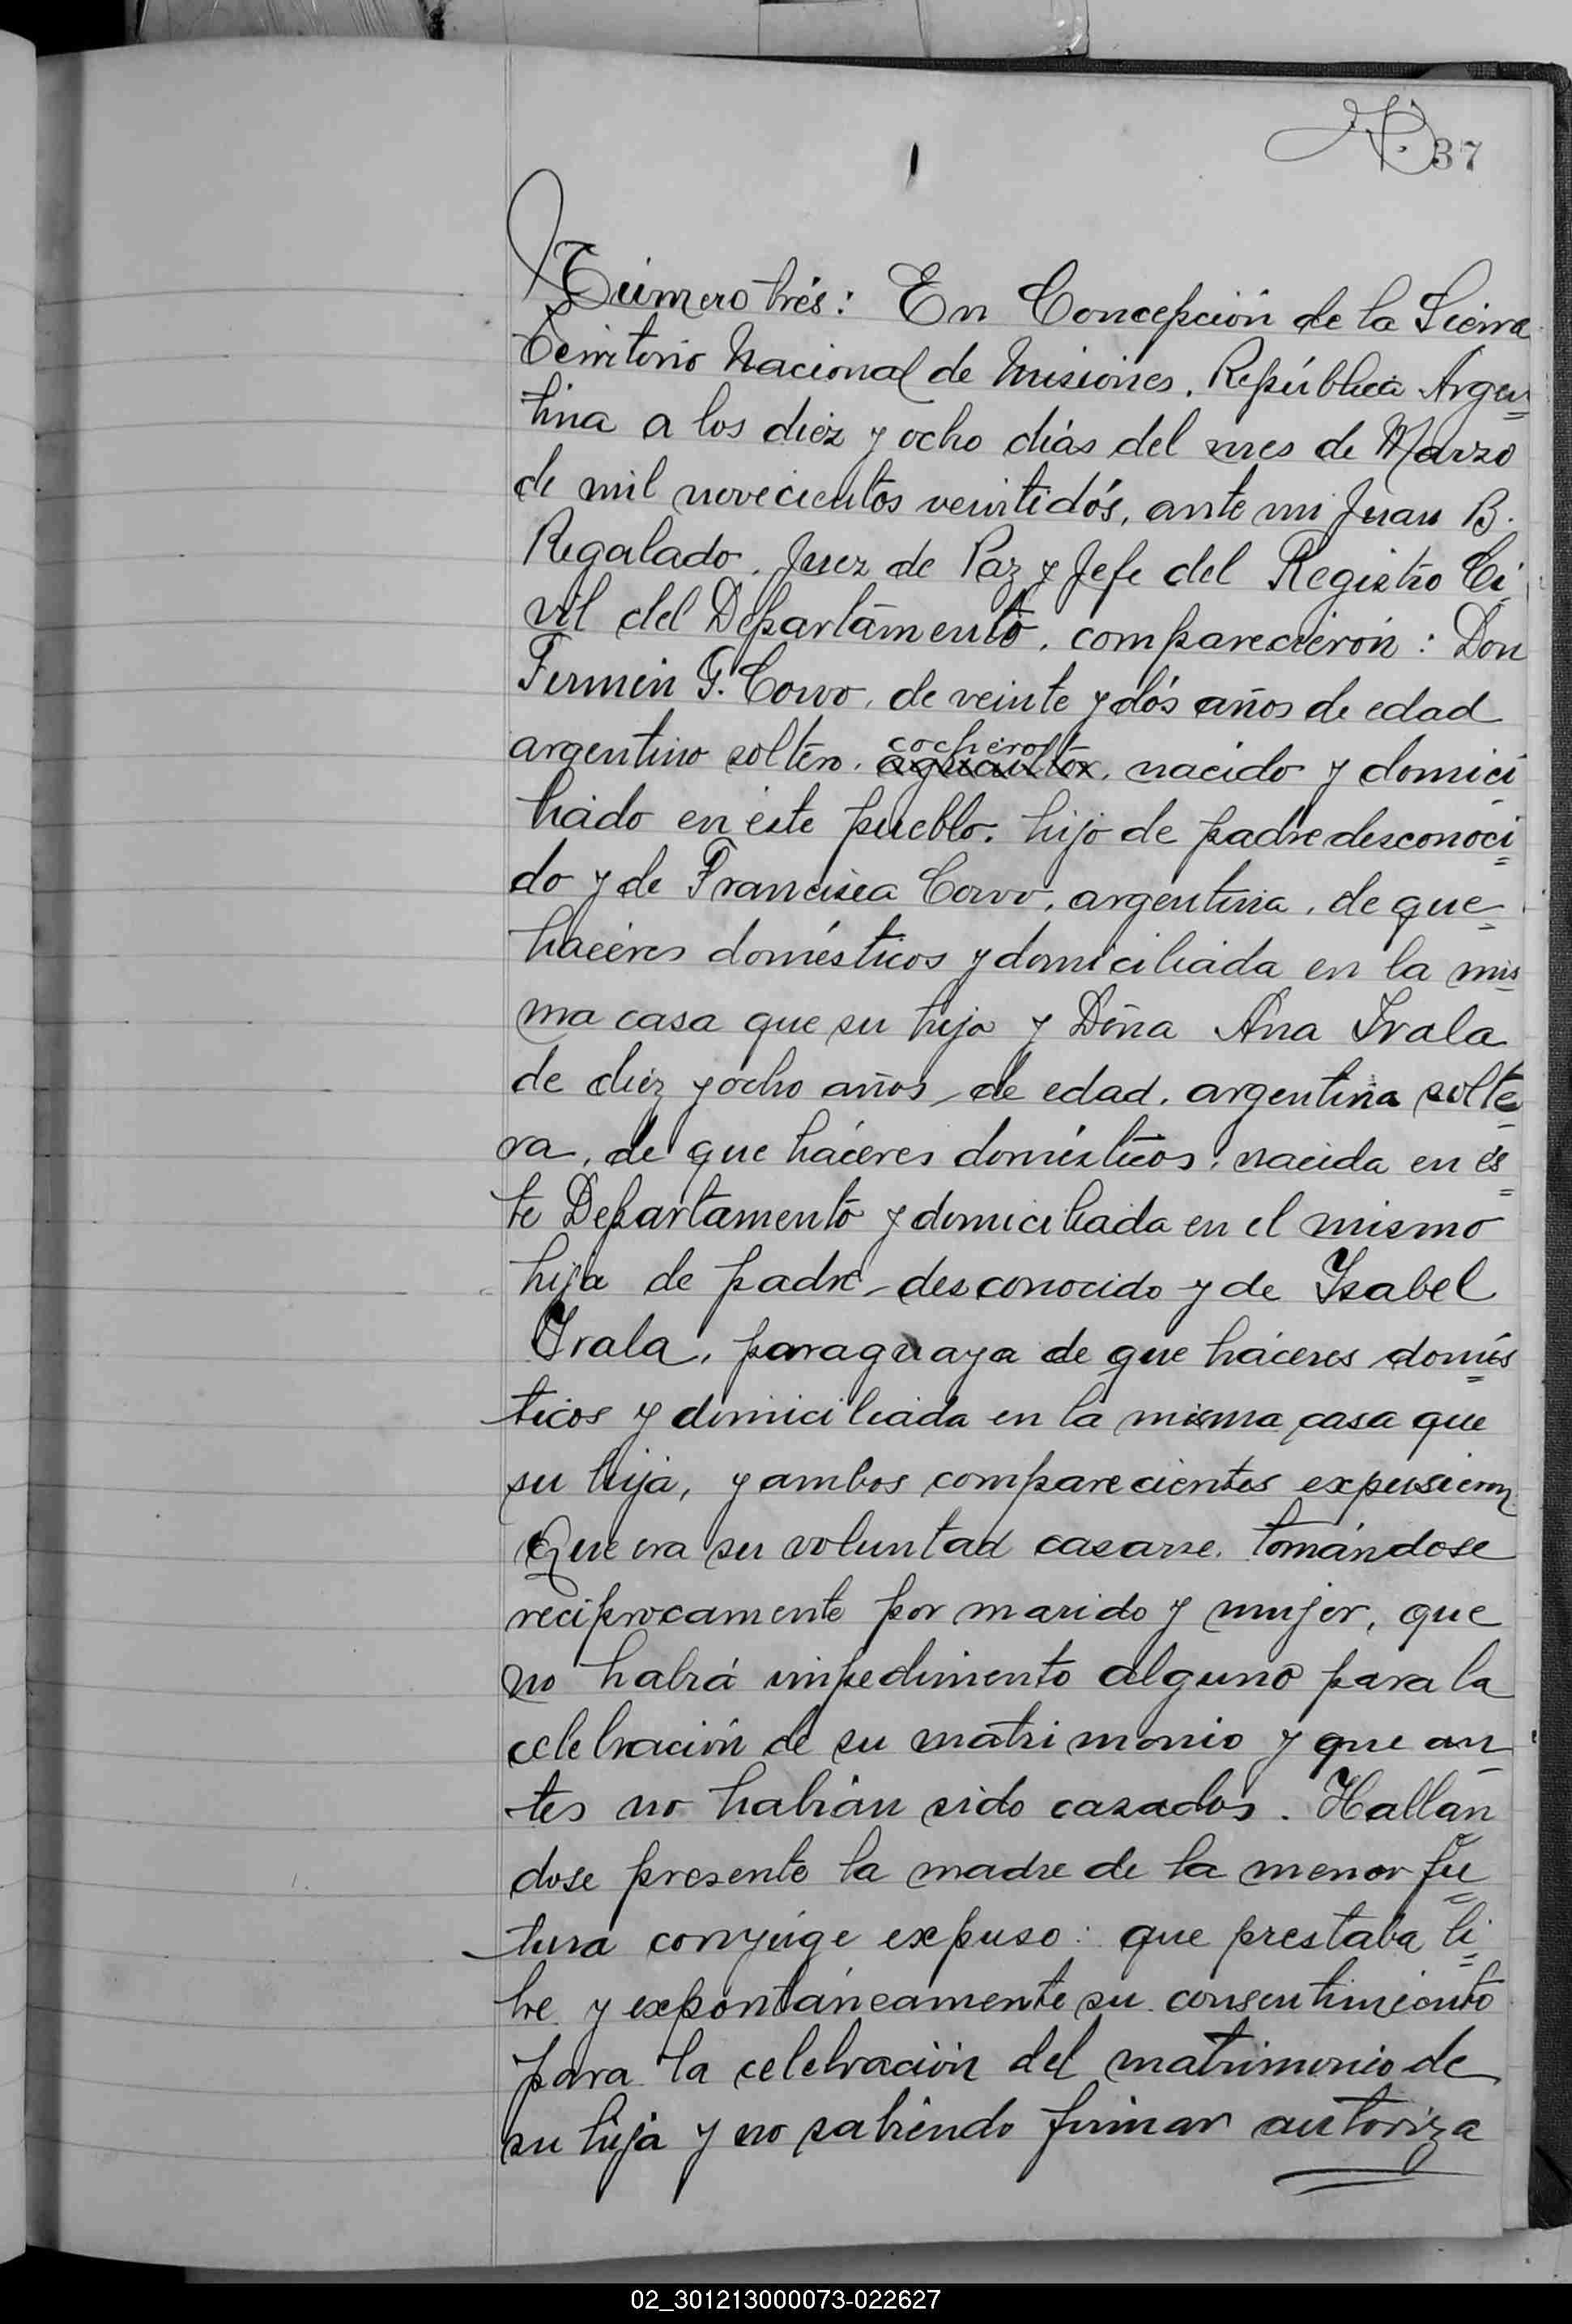 37
Número trés: En Concepción de la Sierra
Territorio Nacional de Misiones. República Argen=
tina a los diez y ocho días del mes de Marzo
de mil novecientos veintidós, ante mi Juan B.
Regalado. Juez de Paz y Jefe del Registro Ci-
vil del Departamento. comparecieron: Don
Fermin G. Corvo, de veinte y dós años de edad
argentino soltero. cochero, nacido y domici-
liado en éste pueblo. hijo de padre desconoci=
do y de Francisca Corvo. argentina. de que=
haceres domésticos y domiciliada en la mis=
ma casa que su hijo y Doña Ana Irala
de diez y ocho años de edad. argentina solte-
ra, de que háceres domésticos. nacida en és=
te Departamento y domiciliada en el mismo
hija de padre desconocido y de Isabel
Irala, paraguaya de que háceres domés=
ticos y domiciliada en la misma casa que
su hija, y ambos comparecientes expusieron
Que era su voluntad casarse. tomándose
reciprocamente por marido y mujer, que
no habrá impedimento alguno para la
celebración de su matrimonio y que an-
tes no habían sido casados. Hallan
dose presente la madre de la menor fu=
tura conyúge expuso: que prestaba li=
bre y expontáneamente su consentimiento
para la celebración del matrimonio de
su hija y no sabiendo firmar autoriza
02_301213000073-022627